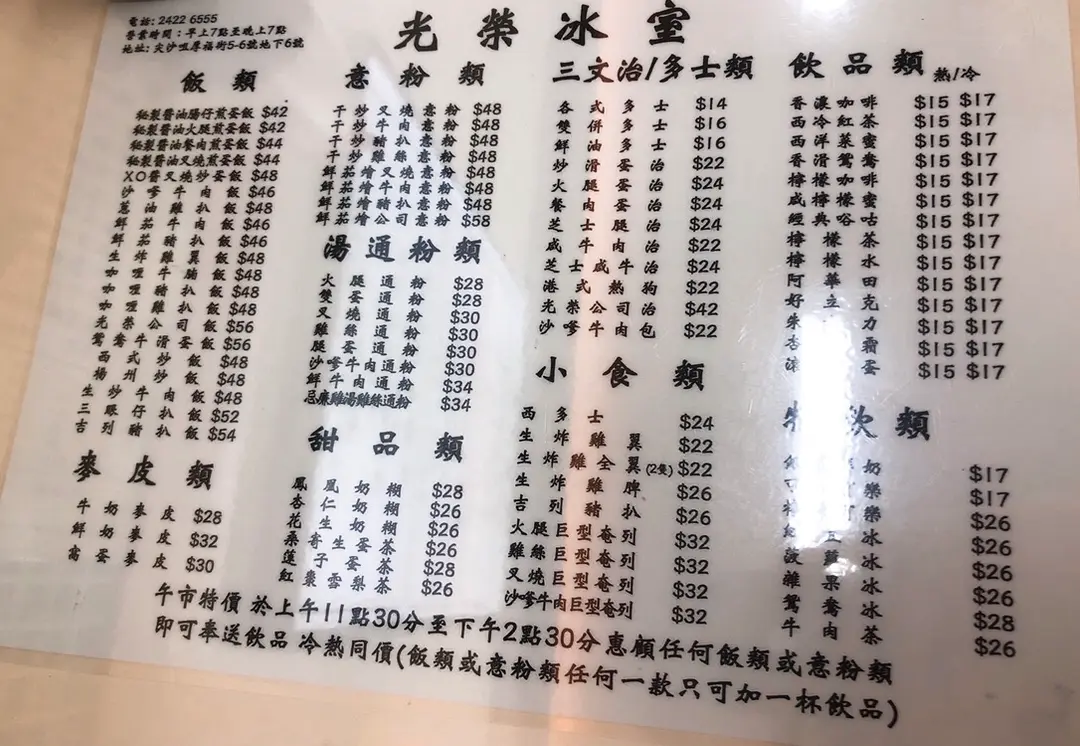 電話: 2422 6555
營業時間：早上7點至晚上7點
地址: 尖沙咀厚福街5-6號地下6號
光榮冰室
飯類
秘製醬油腸仔煎蛋飯 $42
秘製醬油火腿煎蛋飯 $42
秘製醬油餐肉煎蛋飯 $44
秘製醬油叉燒煎蛋飯 $44
XO醬叉燒炒蛋飯 $48
沙嗲牛肉飯 $46
蔥油雞扒飯 $48
鮮茄牛肉飯 $46
鮮茄豬扒飯 $46
生炸雞翼飯 $48
咖喱牛腩飯 $48
咖喱豬扒飯 $48
咖喱雞扒飯 $48
光榮公司飯 $56
鴛鴦牛滑蛋飯 $56
西式炒飯 $48
楊州炒飯 $48
生炒牛肉飯 $48
三眼仔扒飯 $52
吉列豬扒飯 $54
麥皮類
牛奶麥皮 $28
鮮奶麥皮 $32
窩蛋麥皮 $30
意粉類
干炒叉燒意粉 $48
干炒牛肉意粉 $48
干炒豬扒意粉 $48
干炒雞絲意粉 $48
鮮茄燴叉燒意粉 $48
鮮茄燴牛肉意粉 $48
鮮茄燴豬扒意粉 $48
鮮茄燴公司意粉 $58
湯通粉類
火腿通粉 $28
雙蛋通粉 $28
叉燒通粉 $30
雞絲通粉 $30
腿蛋通粉 $30
沙嗲牛肉通粉 $30
鮮牛肉通粉 $34
忌廉雞湯雞絲通粉 $34
甜品類
鳳凰奶糊 $28
杏仁奶糊 $26
花生奶糊 $26
桑寄生蛋茶 $26
蓮子蛋茶 $28
紅棗雪梨茶 $26
三文治/多士類
各式多士 $14
雙併多士 $16
鮮油多士 $16
炒滑蛋治 $22
火腿蛋治 $24
餐肉蛋治 $24
芝士腿治 $24
咸牛肉治 $22
芝士咸牛治 $24
港式熱狗 $22
光榮公司治 $42
沙嗲牛肉包 $22
小食類
西多士 $24
生炸雞翼 $22
生炸雞全翼(2隻) $22
生炸雞脾 $26
吉列豬扒 $26
火腿巨型奄列 $32
雞絲巨型奄列 $32
叉燒巨型奄列 $32
沙嗲牛肉巨型奄列 $32
飲品類 熱/冷
香濃咖啡 $15 $17
西冷紅茶 $15 $17
西洋菜蜜 $15 $17
香滑鴛鴦 $15 $17
檸檬咖啡 $15 $17
咸檸檬蜜 $15 $17
經典唂咕 $15 $17
檸檬茶 $15 $17
檸檬水 $15 $17
阿華田 $15 $17
好立克 $15 $17
朱力 $15 $17
杏霜 $15 $17
滾蛋 $15 $17
飲類
奶 $17
樂 $17
樂 $26
冰 $26
冰 $26
雜果冰 $26
冰 $28
牛肉茶 $26
午市特價 於上午11點30分至下午2點30分惠顧任何飯類或意粉類
即可奉送飲品 冷熱同價(飯類或意粉類任何一款只可加一杯飲品)